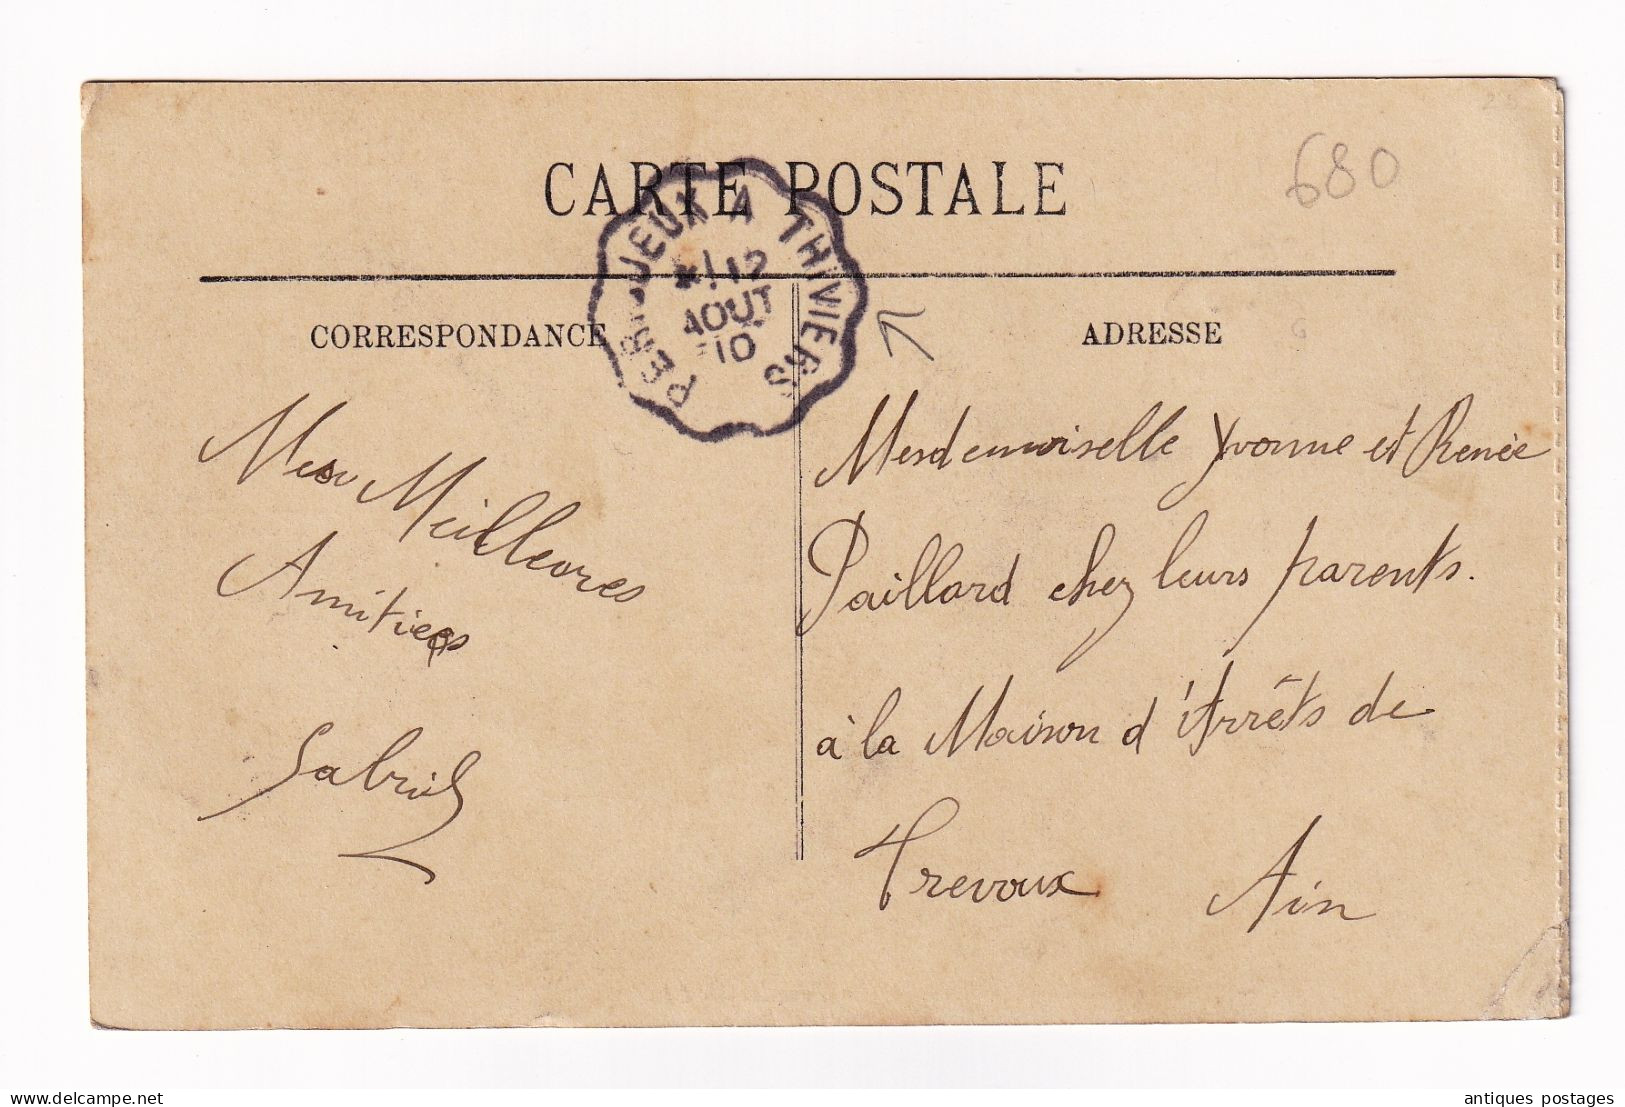 CARTE POSTALE
680
PERIGUEUX A THIVIERS
12
AOUT
10
CORRESPONDANCE
ADRESSE
Mes Meilleures
Amitiés
Gabriel
Mesdemoiselle Yvonne et Renée
Paillard chez leurs parents.
à la Maison d'Arrêts de
Trevoux Ain
delcampe.net
antiques postages